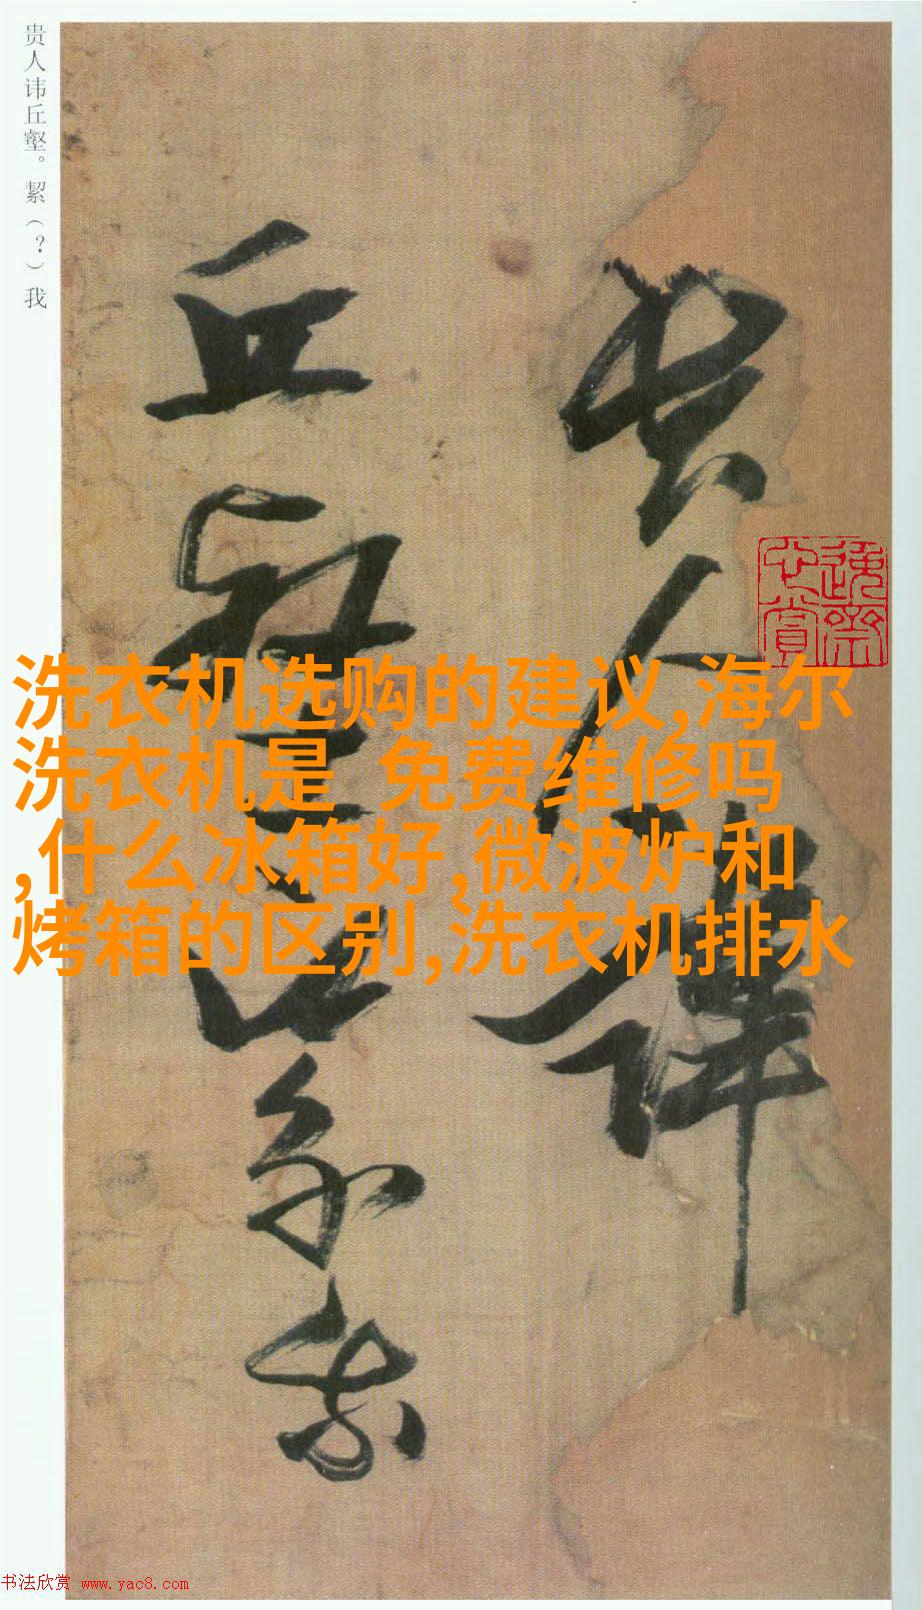 贵人讳丘壑。絜（？）我
贵人讳
丘壑之絜我
洗衣机选购的建议,海尔
洗衣机是 免费维修吗
,什么冰箱好,微波炉和
烤箱的区别,洗衣机排水
书法欣赏 www.yac8.com